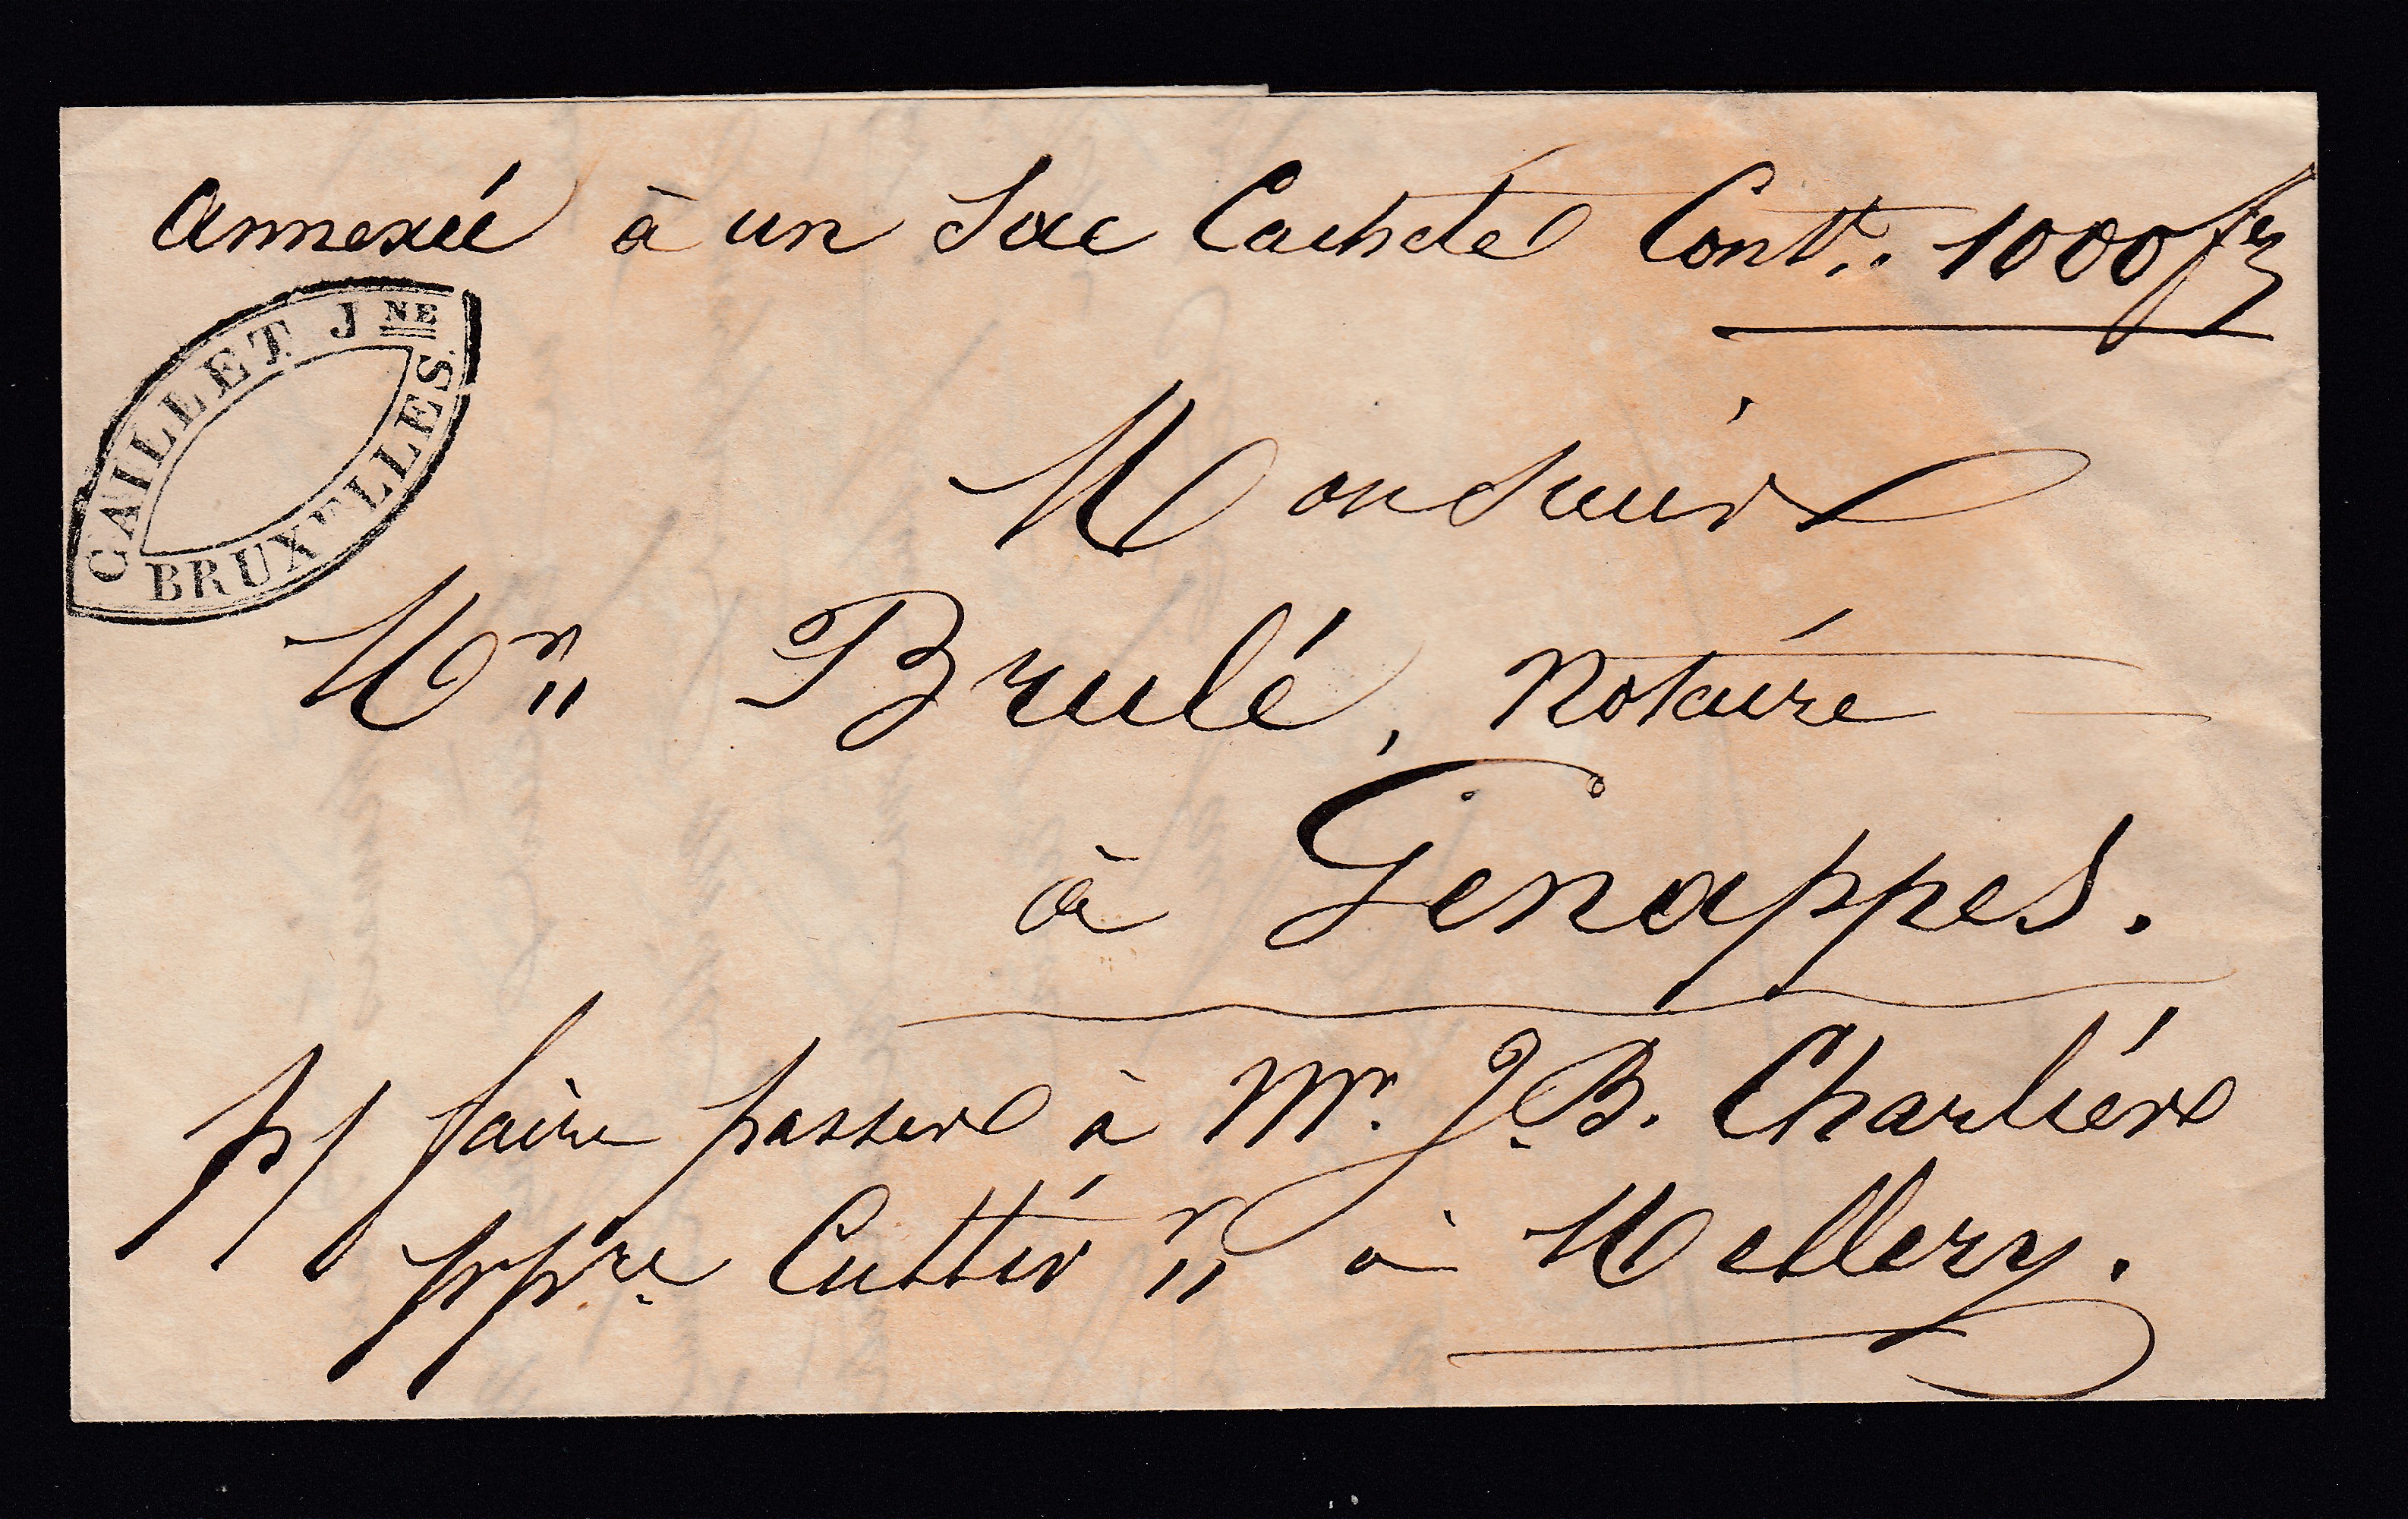 Annexée à un Sac Cacheté Contt. 1000 frs
CAILLET JNE
BRUXELLES
Monsieur
Mr Brulé, Notaire
à Genappes.
p/ faire passer à Mr. J.B. Charlier
pre à Mellery.